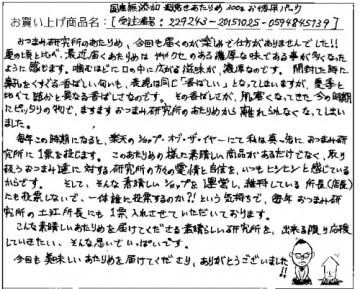 国産無添加 素焼きあたりめ 200g お得用パック
お買い上げ商品名：[受注番号: 229243-20151025-0594845739]
おつまみ研究所のあたりめ、今回も届くのが楽しみで仕方がありませんでした!!
夏の頃と比べ、最近届くあたりめは ヤリクセのある濃厚な味である事が多くなった
ように感じます。噛むほどに口の中に広がる滋味が、濃厚なのです。開封した時に
鼻孔をくすぐる香ばしい匂いも、表現は同じ「香ばしい」となってしまいますが、夏季と
比べて随分と異なる香ばしさなのです。その香ばしさが、肌寒くなってきた今の時期
にピッタリの物で、ますますおつまみ研究所のあたりめから離れられなくなってしまい
ました。
毎年この時期になると、楽天のショップ・オブ・ザ・イヤーにて私は真っ先におつまみ研
究所に1票を投じます。このあたりめの様な素晴しい商品があるだけでなく、取り
扱うおつまみ達に対する研究所の方々の愛情と自信を、いつもヒシヒシと感じている
からです。そして、そんな素晴しいショップを運営し、維持している所長(店長)
にも投票しないで、一体誰に投票するのか?!という気持ちで、毎年おつまみ研
究所の土江所長にも1票入れさせていただいております。
こんな素晴しいあたりめを届けてくださる素晴らしい研究所を、出来る限り応援
していきたい、そんな思いでいっぱいです。
今回も美味しいあたりめを届けてくださり、ありがとうございました!!